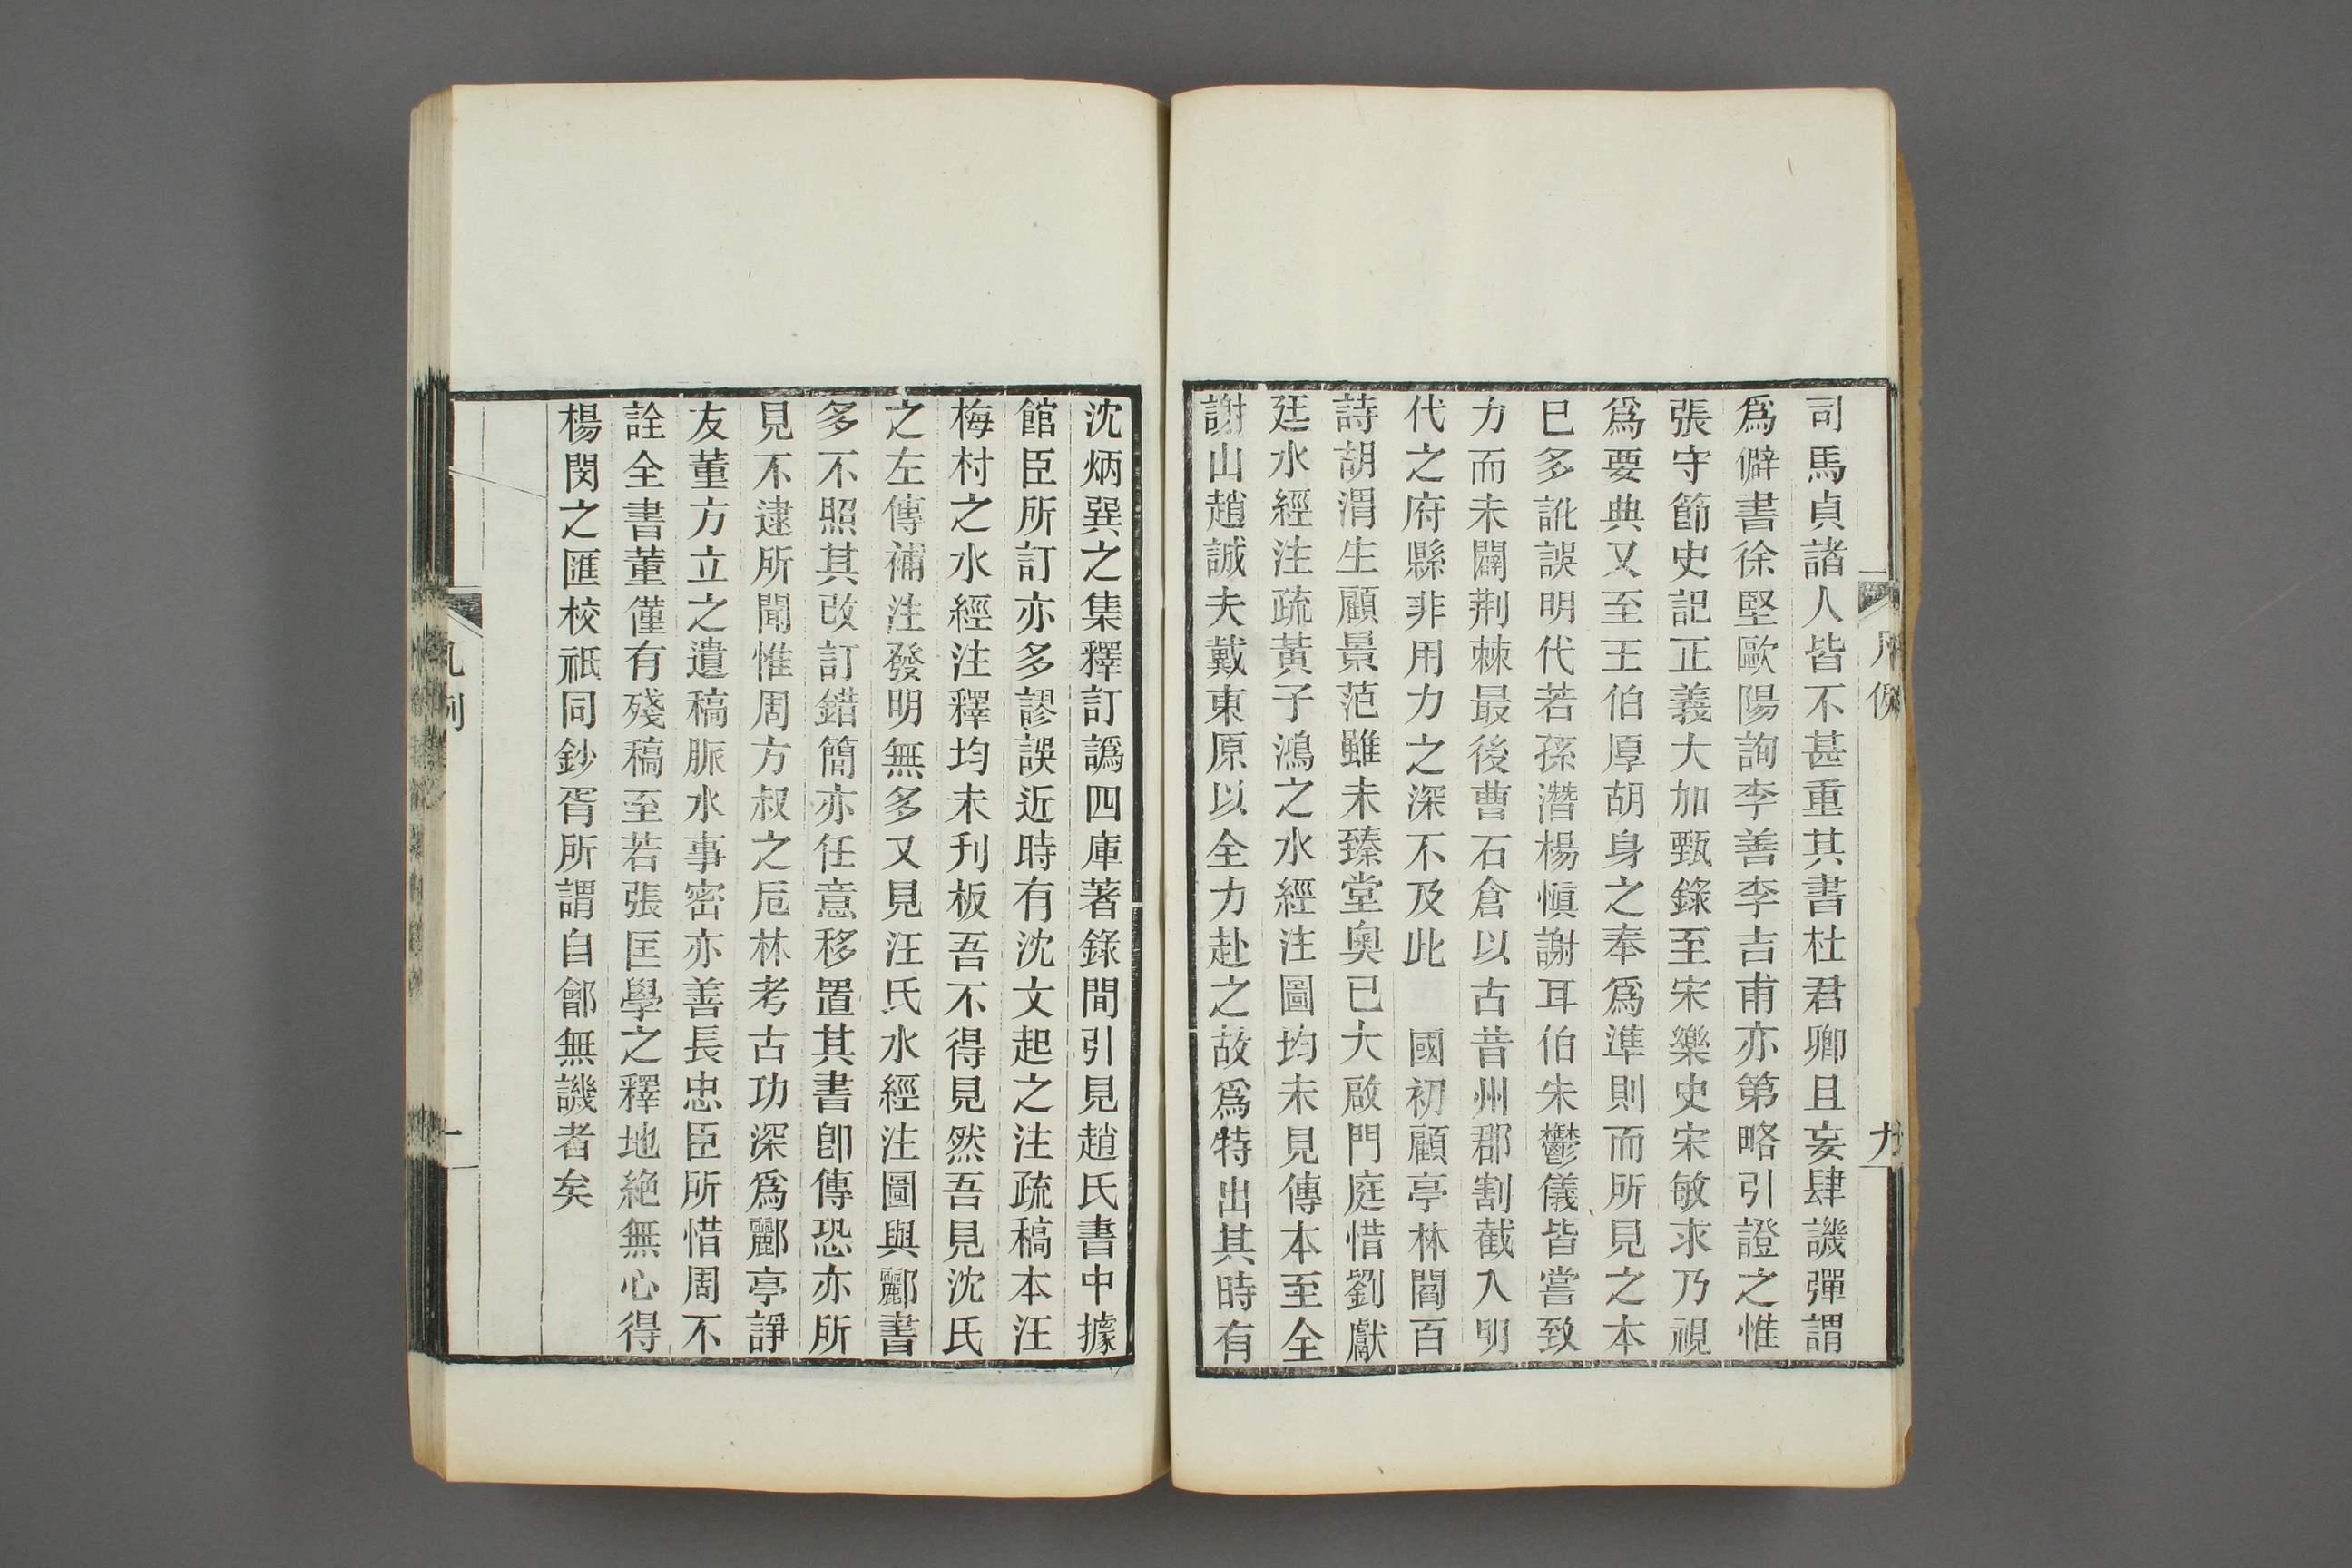 凡例
九
司馬貞諸人皆不甚重其書杜君卿且妄肆譏彈謂
爲僻書徐堅歐陽詢李善李吉甫亦第略引證之惟
張守節史記正義大加甄錄至宋樂史宋敏求乃視
爲要典又至王伯厚胡身之奉爲準則而所見之本
已多訛誤明代若孫潛楊愼謝耳伯朱鬱儀皆嘗致
力而未闢荆棘最後曹石倉以古昔州郡割截入明
代之府縣非用力之深不及此　國初顧亭林閻百
詩胡渭生顧景范雖未臻堂奧已大啟門庭惜劉獻
廷水經注疏黃子鴻之水經注圖均未見傳本至全
謝山趙誠夫戴東原以全力赴之故爲特出其時有
沈炳巽之集釋訂譌四庫著錄間引見趙氏書中據
館臣所訂亦多謬誤近時有沈文起之注疏稿本汪
梅村之水經注釋均未刋板吾不得見然吾見沈氏
之左傳補注發明無多又見汪氏水經注圖與酈書
多不照其改訂錯簡亦任意移置其書卽傳恐亦所
見不逮所聞惟周方叔之卮林考古功深爲酈亭諍
友董方立之遺稿脈水事密亦善長忠臣所惜周不
詮全書董僅有殘稿至若張匡學之釋地絶無心得
楊閔之匯校祇同鈔胥所謂自鄶無譏者矣